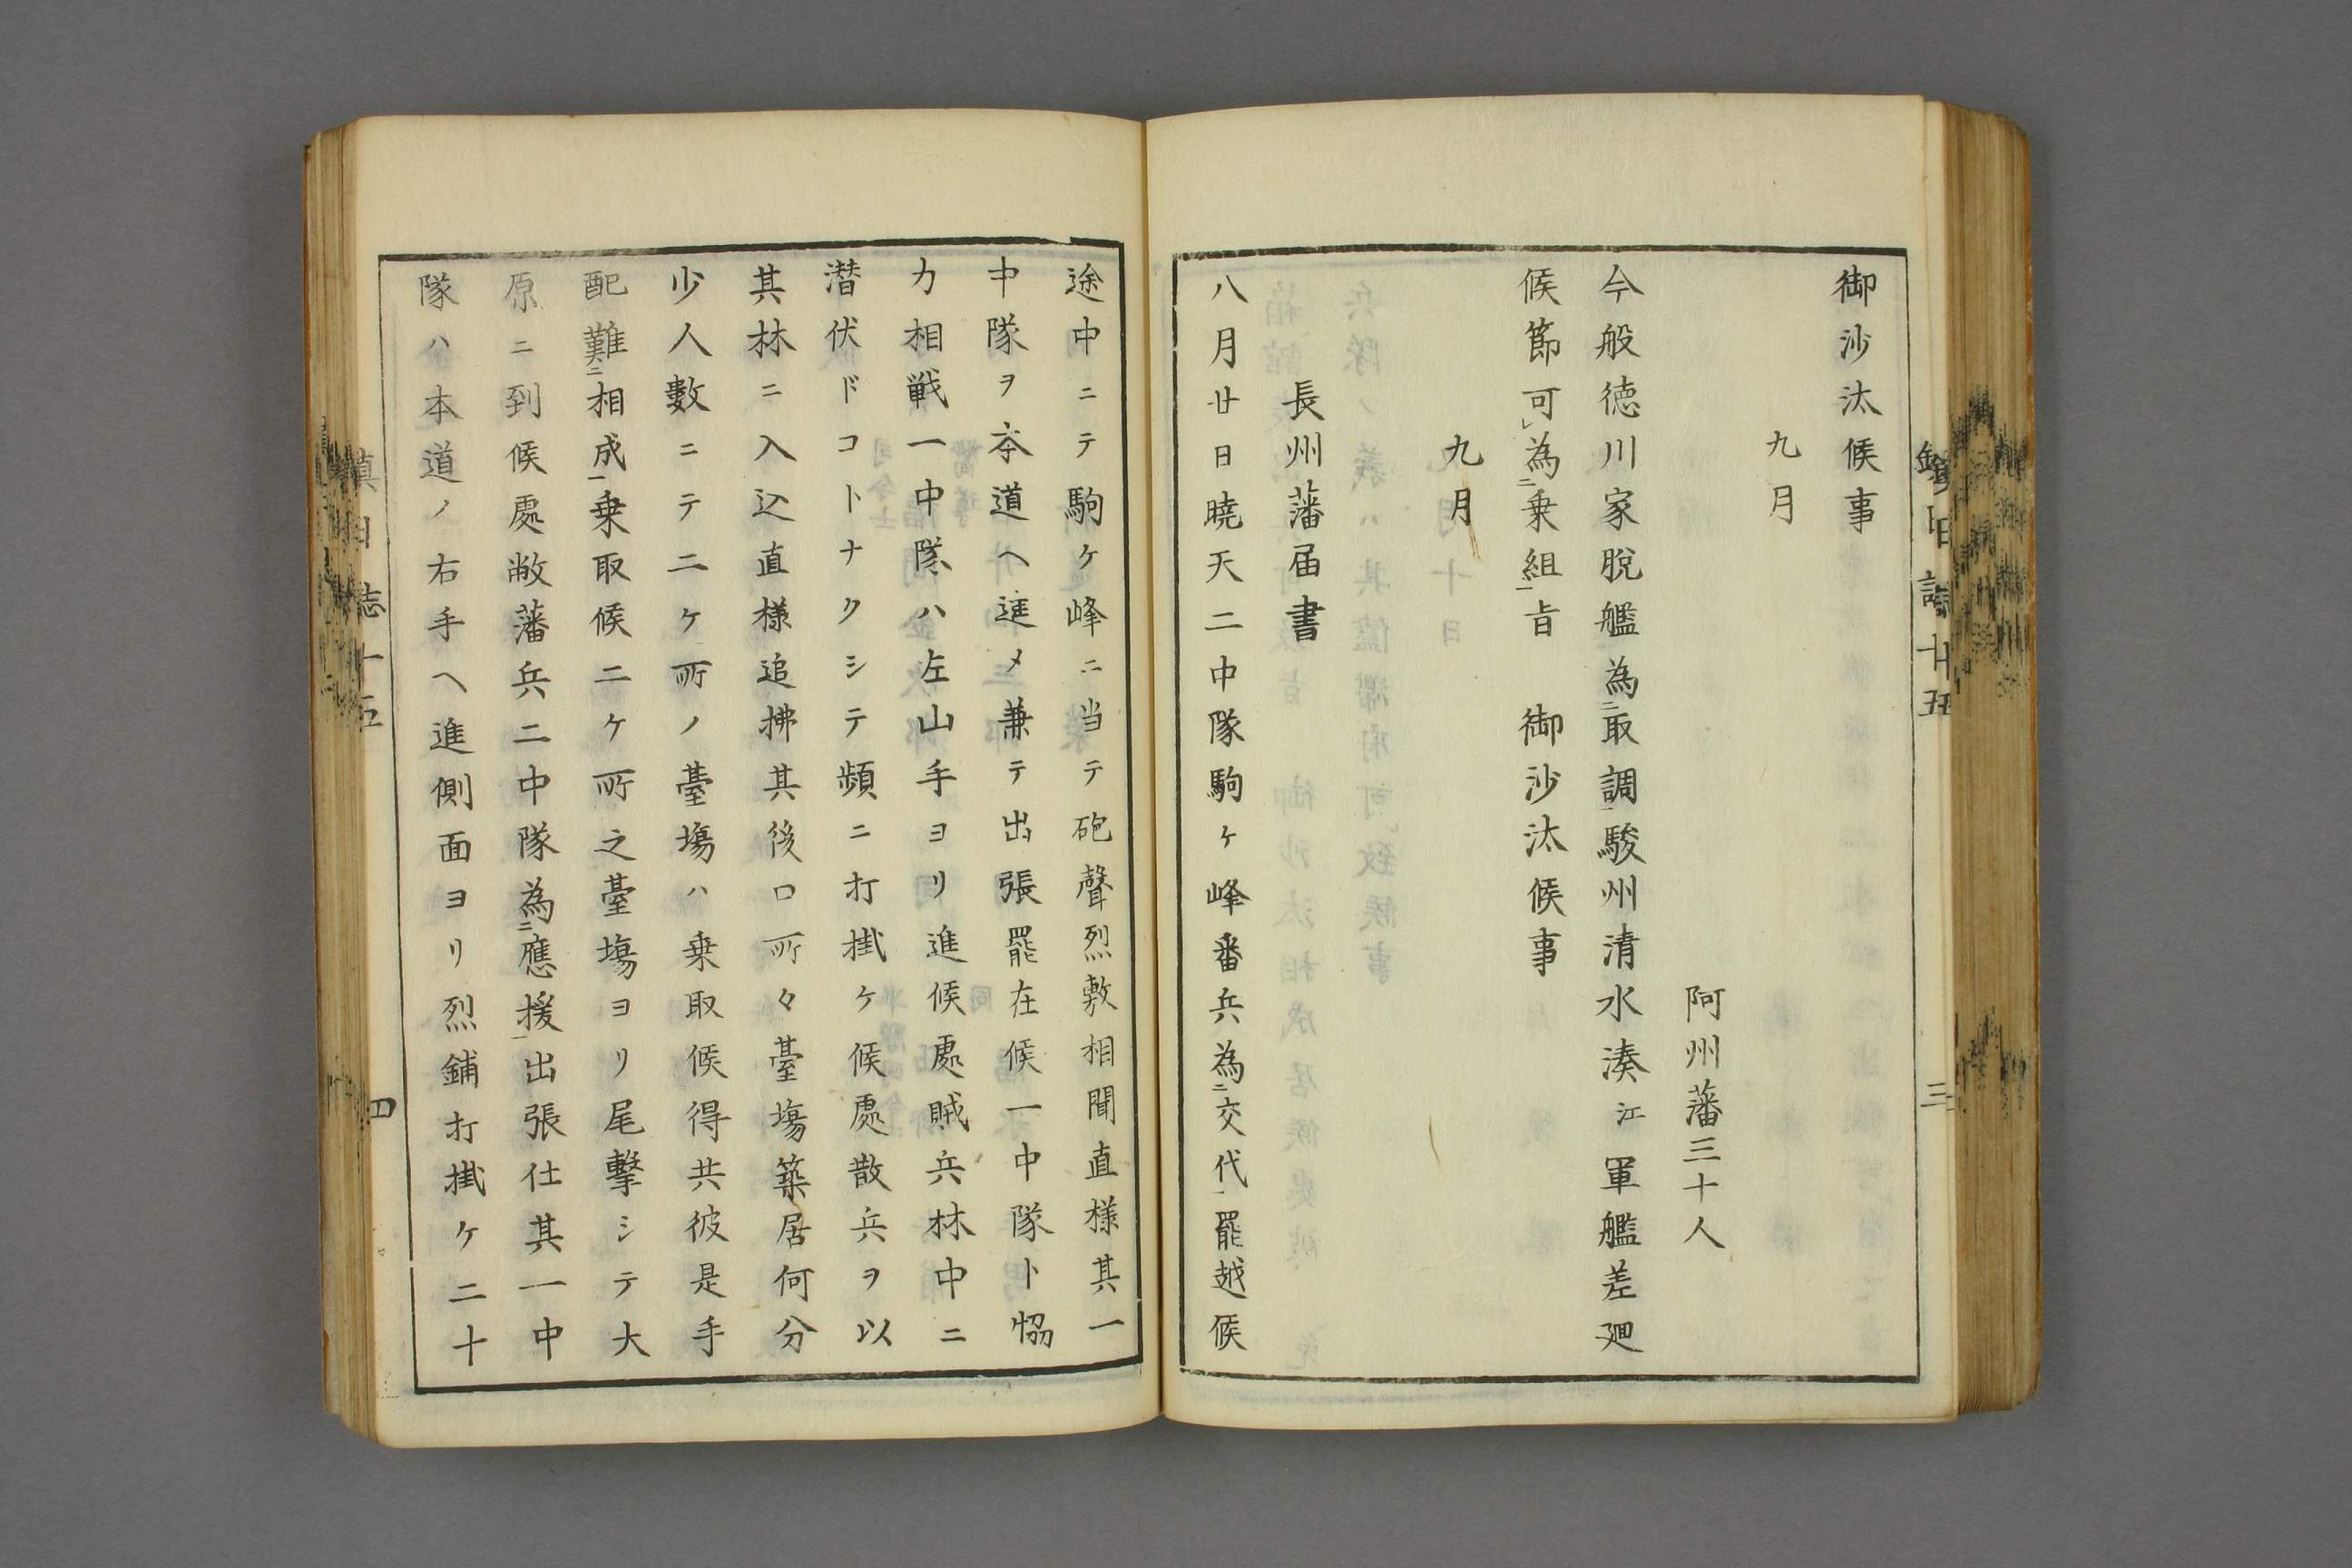 御沙汰候事
九月
阿州藩三十人
今般徳川家脱艦為二取調一駿州清水湊江軍艦差廻
候節可レ為二乗組一旨　御沙汰候事
九月
長州藩届書
八月廿日暁天二中隊駒ケ峰番兵為二交代一罷越候
途中ニテ駒ケ峰ニ当テ砲聲烈敷相聞直様其一
中隊ヲ本道ヘ進メ兼テ出張罷在候一中隊ト恊
力相戦一中隊ハ左山手ヨリ進候處賊兵林中ニ
潜伏ドコトナクシテ頻ニ打掛ケ候處散兵ヲ以
其林ニ入込直様追拂其後口所々臺場築居何分
少人數ニテ二ケ所ノ臺塲ハ乗取候得共彼是手
配難二相成一乗取候二ケ所之臺塲ヨリ尾撃シテ大
原ニ到候處敝藩兵二中隊為二應援一出張仕其一中
隊ハ本道ノ右手ヘ進側面ヨリ烈鋪打掛ケ二十
鎮日誌十五
三
鎮日誌十五
四